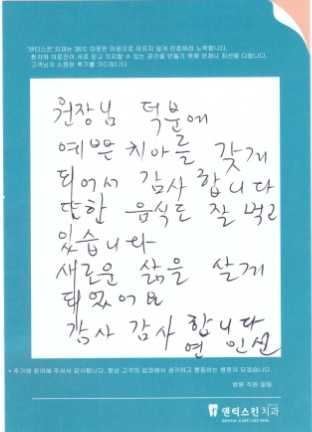 '앤티스킨' 치과는 36℃ 따뜻한 마음으로 아프지 않게 진료하려 노력합니다.
환자와 의료진이 서로 믿고 의지할 수 있는 공간을 만들기 위해 언제나 최선을 다합니다.
고객님의 소중한 후기를 기다립니다.
원장님 덕분에
예쁜 치아를 갖게
되어서 감사합니다
또한 음식도 잘 먹고
있습니다
새로운 삶을 살게
되었어요
감사 감사합니다
연 인선
* 후기에 참여해 주셔서 감사합니다. 항상 고객의 입장에서 생각하고 행동하는 병원이 되겠습니다.
병원 직원 일동
앤티스킨치과
DENTAL CARE LIKE SKIN